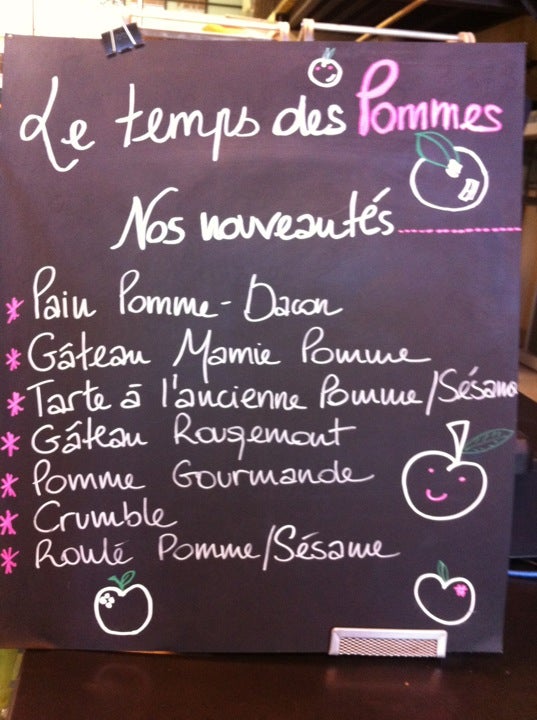 Le temps des Pommes
Nos nouveautés
* Pain Pomme-Bacon
* Gâteau Mamie Pomme
* Tarte à l'ancienne Pomme/Sésame
* Gâteau Rougemont
* Pomme Gourmande
* Crumble
* Roulé Pomme/Sésame